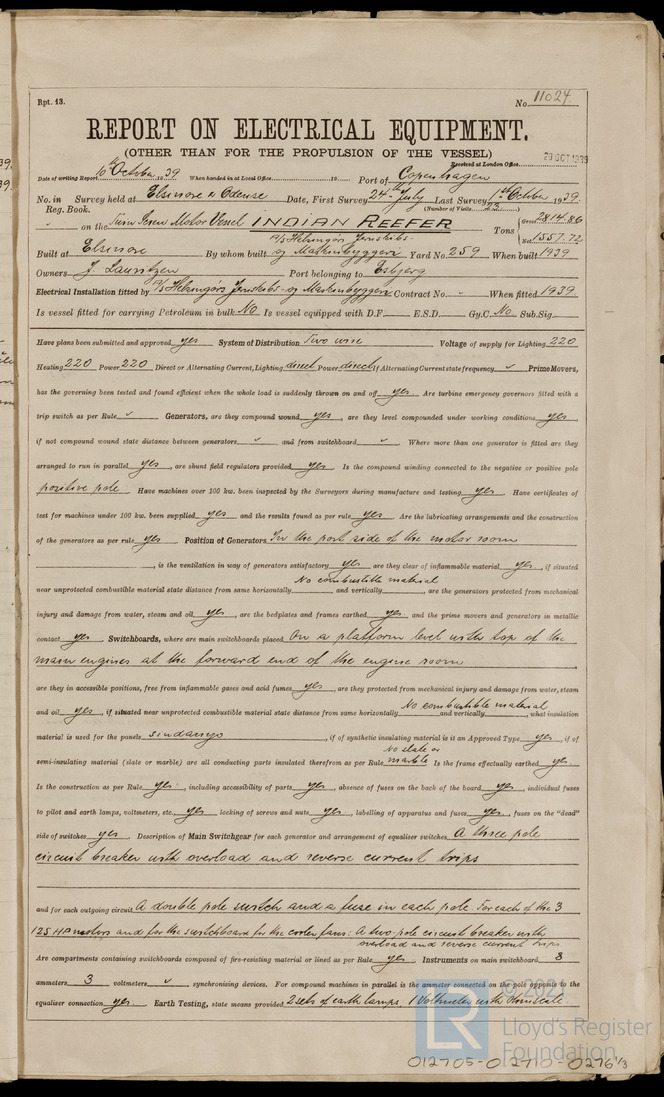 Rpt. 13.
No. 11024
REPORT ON ELECTRICAL EQUIPMENT.
(OTHER THAN FOR THE PROPULSION OF THE VESSEL)
Received at London Office 20 OCT 1939
Date of writing Report 10th October 1939 When handed in at Local Office 19 Port of Copenhagen
No. in Survey held at Elsinore & Odense Date, First Survey 24th July Last Survey 1st October 1939
Reg. Book. (Number of Visits 23)
" on the Twin Screw Motor Vessel INDIAN REEFER Tons { Gross 2814.86
Net 1557.72
Built at Elsinore By whom built A/S Helsingørs Jernskibs- og Maskinbyggeri Yard No. 259 When built 1939
Owners J. Lauritzen Port belonging to Esbjerg
Electrical Installation fitted by A/S Helsingørs Jernskibs- og Maskinbyggeri Contract No. - When fitted 1939
Is vessel fitted for carrying Petroleum in bulk No Is vessel equipped with D.F. E.S.D. Gy.C. No Sub.Sig.
Have plans been submitted and approved yes System of Distribution Two wire Voltage of supply for Lighting 220
Heating 220 Power 220 Direct or Alternating Current, Lighting direct Power direct If Alternating Current state frequency ✓ Prime Movers,
has the governing been tested and found efficient when the whole load is suddenly thrown on and off yes Are turbine emergency governors fitted with a
trip switch as per Rule ✓ Generators, are they compound wound yes, are they level compounded under working conditions yes,
if not compound wound state distance between generators ✓ and from switchboard ✓ Where more than one generator is fitted are they
arranged to run in parallel yes, are shunt field regulators provided yes Is the compound winding connected to the negative or positive pole
positive pole Have machines over 100 kw. been inspected by the Surveyors during manufacture and testing yes Have certificates of
test for machines under 100 kw. been supplied yes and the results found as per rule yes Are the lubricating arrangements and the construction
of the generators as per rule yes Position of Generators In the port side of the motor room
, is the ventilation in way of generators satisfactory yes are they clear of inflammable material yes, if situated
near unprotected combustible material state distance from same horizontally No combustible material and vertically, are the generators protected from mechanical
injury and damage from water, steam and oil yes, are the bedplates and frames earthed yes and the prime movers and generators in metallic
contact yes Switchboards, where are main switchboards placed On a platform level with top of the
main engines at the forward end of the engine room
are they in accessible positions, free from inflammable gases and acid fumes yes, are they protected from mechanical injury and damage from water, steam
and oil yes, if situated near unprotected combustible material state distance from same horizontally No combustible material and vertically, what insulation
material is used for the panels sindanyo, if of synthetic insulating material is it an Approved Type yes, if of
semi-insulating material (slate or marble) are all conducting parts insulated therefrom as per Rule No slate or marble Is the frame effectually earthed yes
Is the construction as per Rule yes, including accessibility of parts yes, absence of fuses on the back of the board yes, individual fuses
to pilot and earth lamps, voltmeters, etc. yes locking of screws and nuts yes, labelling of apparatus and fuses yes, fuses on the "dead"
side of switches yes Description of Main Switchgear for each generator and arrangement of equaliser switches A three pole
circuit breaker with overload and reverse current trips
and for each outgoing circuit A double pole switch and a fuse in each pole. For each of the 3
125 HP motors and for the switchboard for the cooler fans: A two-pole circuit breaker with
overload and reverse current trips
Are compartments containing switchboards composed of fire-resisting material or lined as per Rule yes Instruments on main switchboard 8
ammeters 3 voltmeters ✓ synchronising devices. For compound machines in parallel is the ammeter connected on the pole opposite to the
equaliser connection yes Earth Testing, state means provided 2 sets of earth lamps, 1 Voltmeter with
© 2021
LR
Lloyd's Register
Foundation
012705-012710-0276 1/3